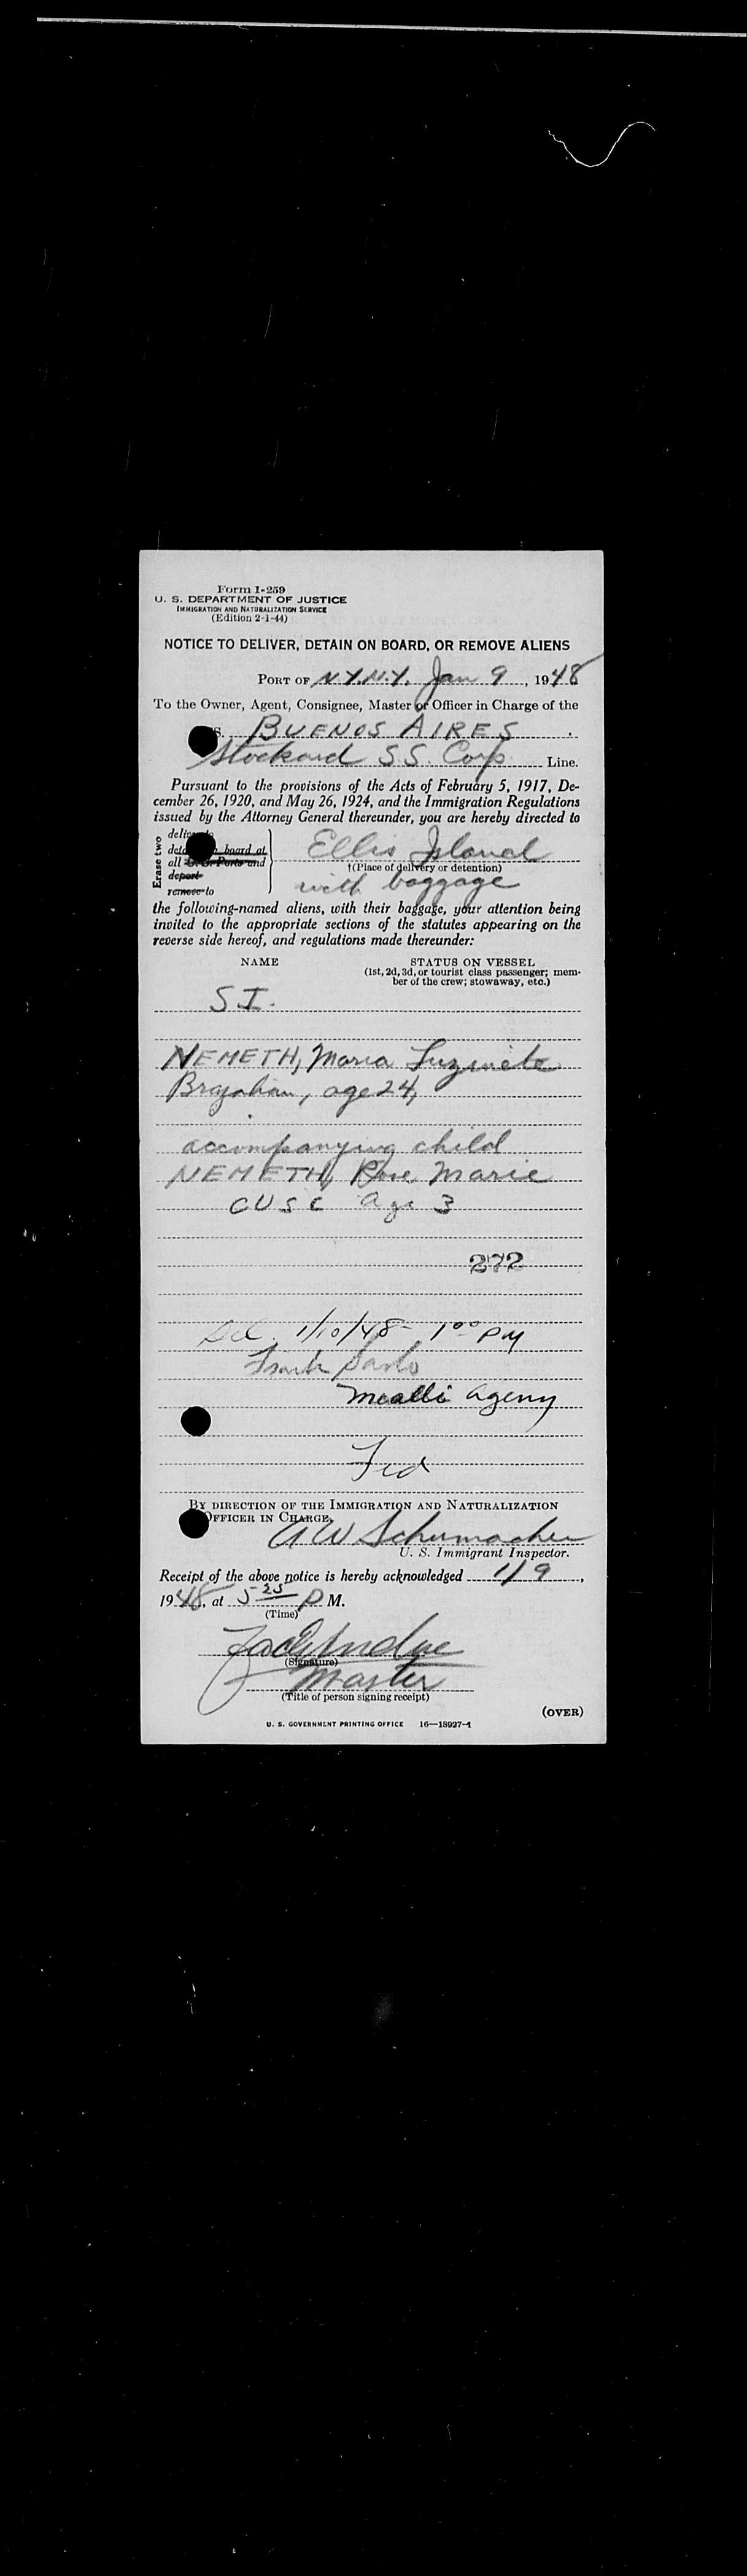 Form I-259
U. S. DEPARTMENT OF JUSTICE
IMMIGRATION AND NATURALIZATION SERVICE
(Edition 2-1-44)
NOTICE TO DELIVER, DETAIN ON BOARD, OR REMOVE ALIENS
PORT OF N.Y.N.Y. Jan 9, 1948
To the Owner, Agent, Consignee, Master or Officer in Charge of the
S. BUENOS AIRES
Stockard S.S. Corp. Line.
Pursuant to the provisions of the Acts of February 5, 1917, De-
cember 26, 1920, and May 26, 1924, and the Immigration Regulations
issued by the Attorney General thereunder, you are hereby directed to
Erase two
deliver to
board at
all U. S. Ports and
deport
remove to
Ellis Island
†(Place of delivery or detention)
with baggage
the following-named aliens, with their baggage, your attention being
invited to the appropriate sections of the statutes appearing on the
reverse side hereof, and regulations made thereunder:
NAME STATUS ON VESSEL
(1st, 2d, 3d, or tourist class passenger; mem-
ber of the crew; stowaway, etc.)
S.I.
NEMETH, Maria Luzinete
age 24,
accompanying child
NEMETH, Rose Marie
CUSC age 3
272
Del. 1/10/48 - 1 00 PM
Frank
agency
BY DIRECTION OF THE IMMIGRATION AND NATURALIZATION
OFFICER IN CHARGE,
A W Schumacher
U. S. Immigrant Inspector.
Receipt of the above notice is hereby acknowledged 1/9,
1948, at 5 25 P M.
(Time)
(Signature)
Master
(Title of person signing receipt)
(OVER)
U. S. GOVERNMENT PRINTING OFFICE 16—18927-1